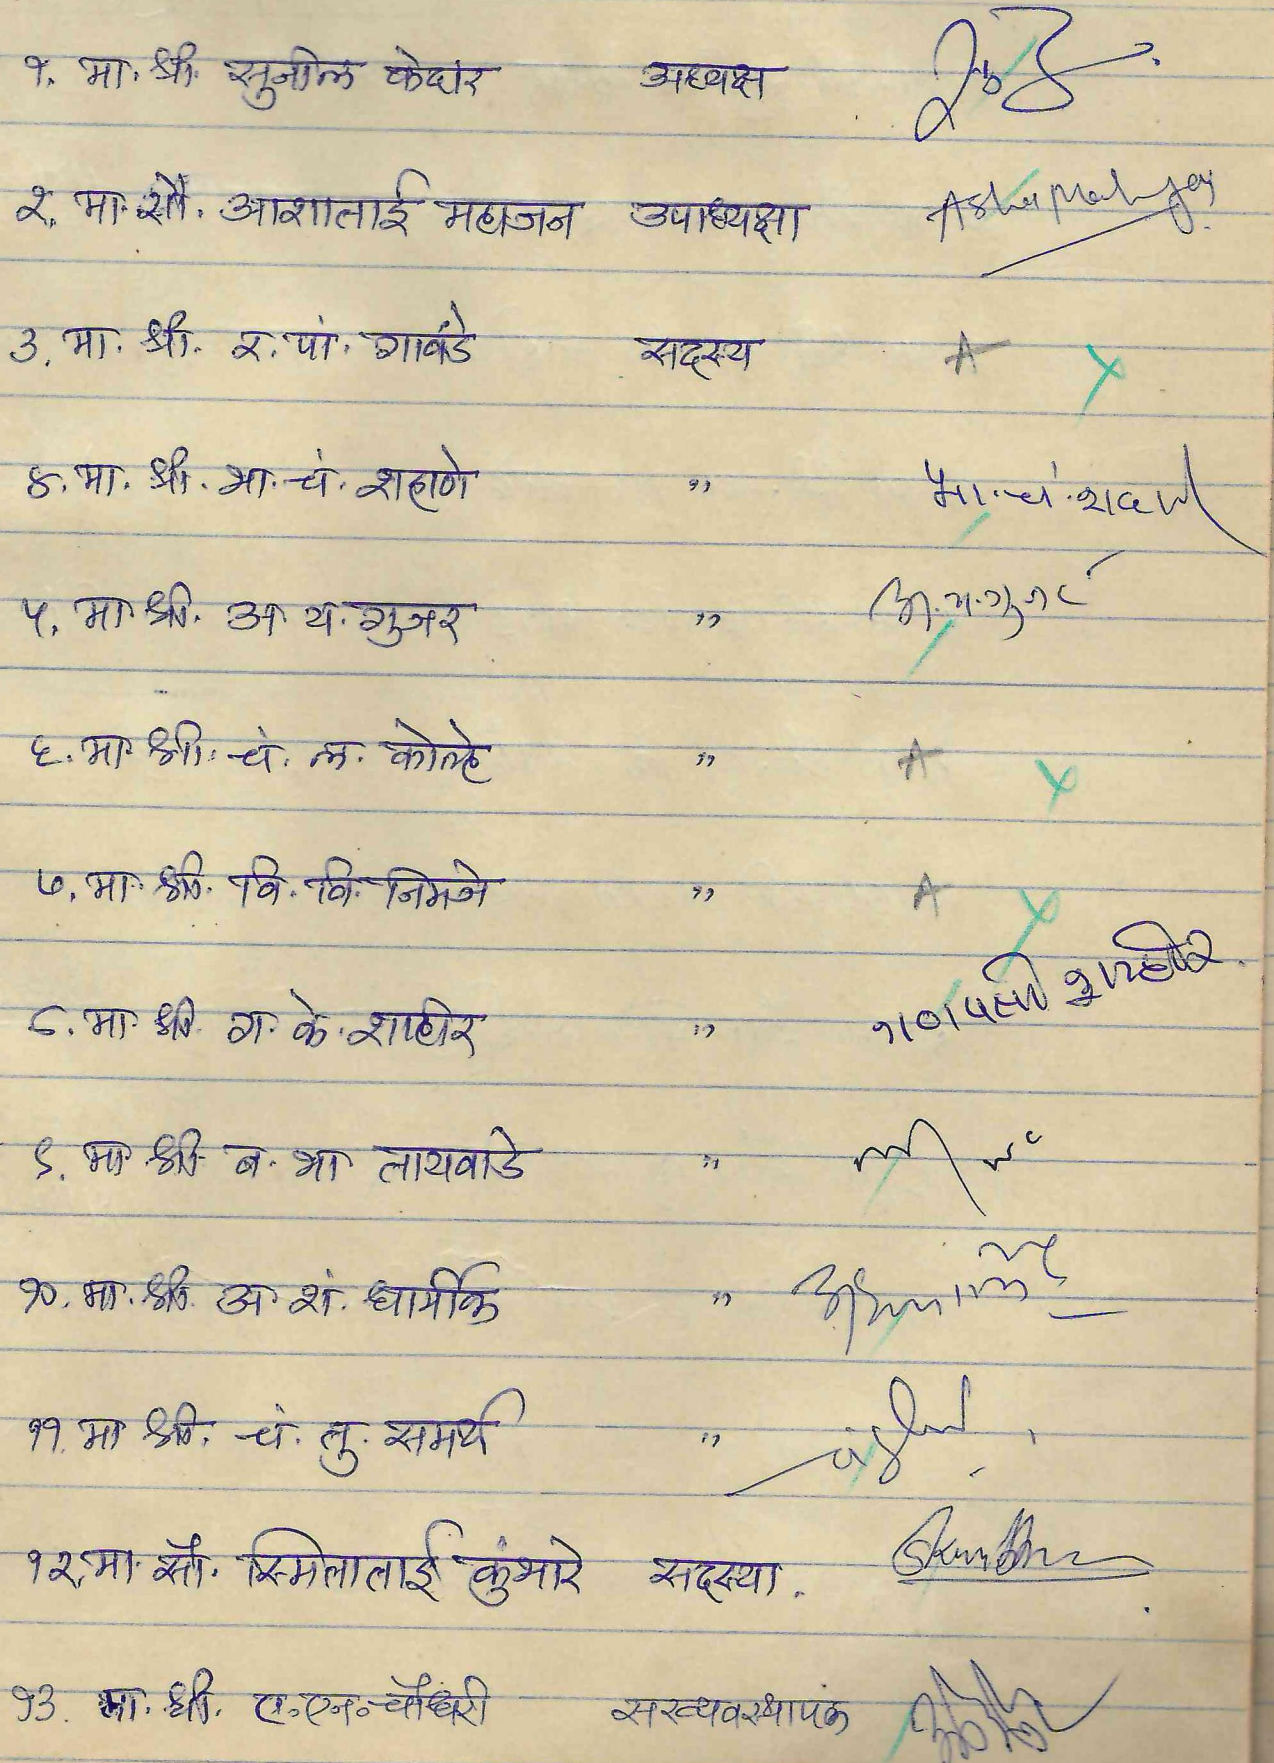 १. मा. श्री. सुनील केदार अध्यक्ष
२. मा. सौ. आशाताई महाजन उपाध्यक्षा Asha Mahajan
३. मा. श्री. र. पां. गावंडे सदस्य A
४. मा. श्री. भा. चं. शहाणे " भा. चं. शहाणे
५. मा. श्री. अ. य. गुजर " अ. य. गुजर
६. मा. श्री. चं. ल. कोल्हे " A
७. मा. श्री. वि. वि. निमजे " A
८. मा. श्री. ग. के. शाहीर " गणपती शाहीर
९. मा. श्री. ब. भा. तायवाडे "
१०. मा. श्री. अ. शं. धार्मीक "
११. मा. श्री. चं. तु. समर्थ "
१२. मा. सौ. स्मिताताई कुंभारे सदस्या.
१३. मा. श्री. ए. एन. चौधरी सरव्यवस्थापक